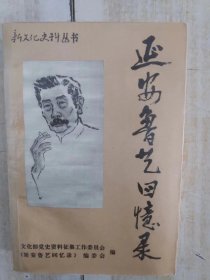 新文化史料丛书
延安鲁艺回憶录
文化部党史资料征集工作委员会
《延安鲁艺回忆录》编委会
编